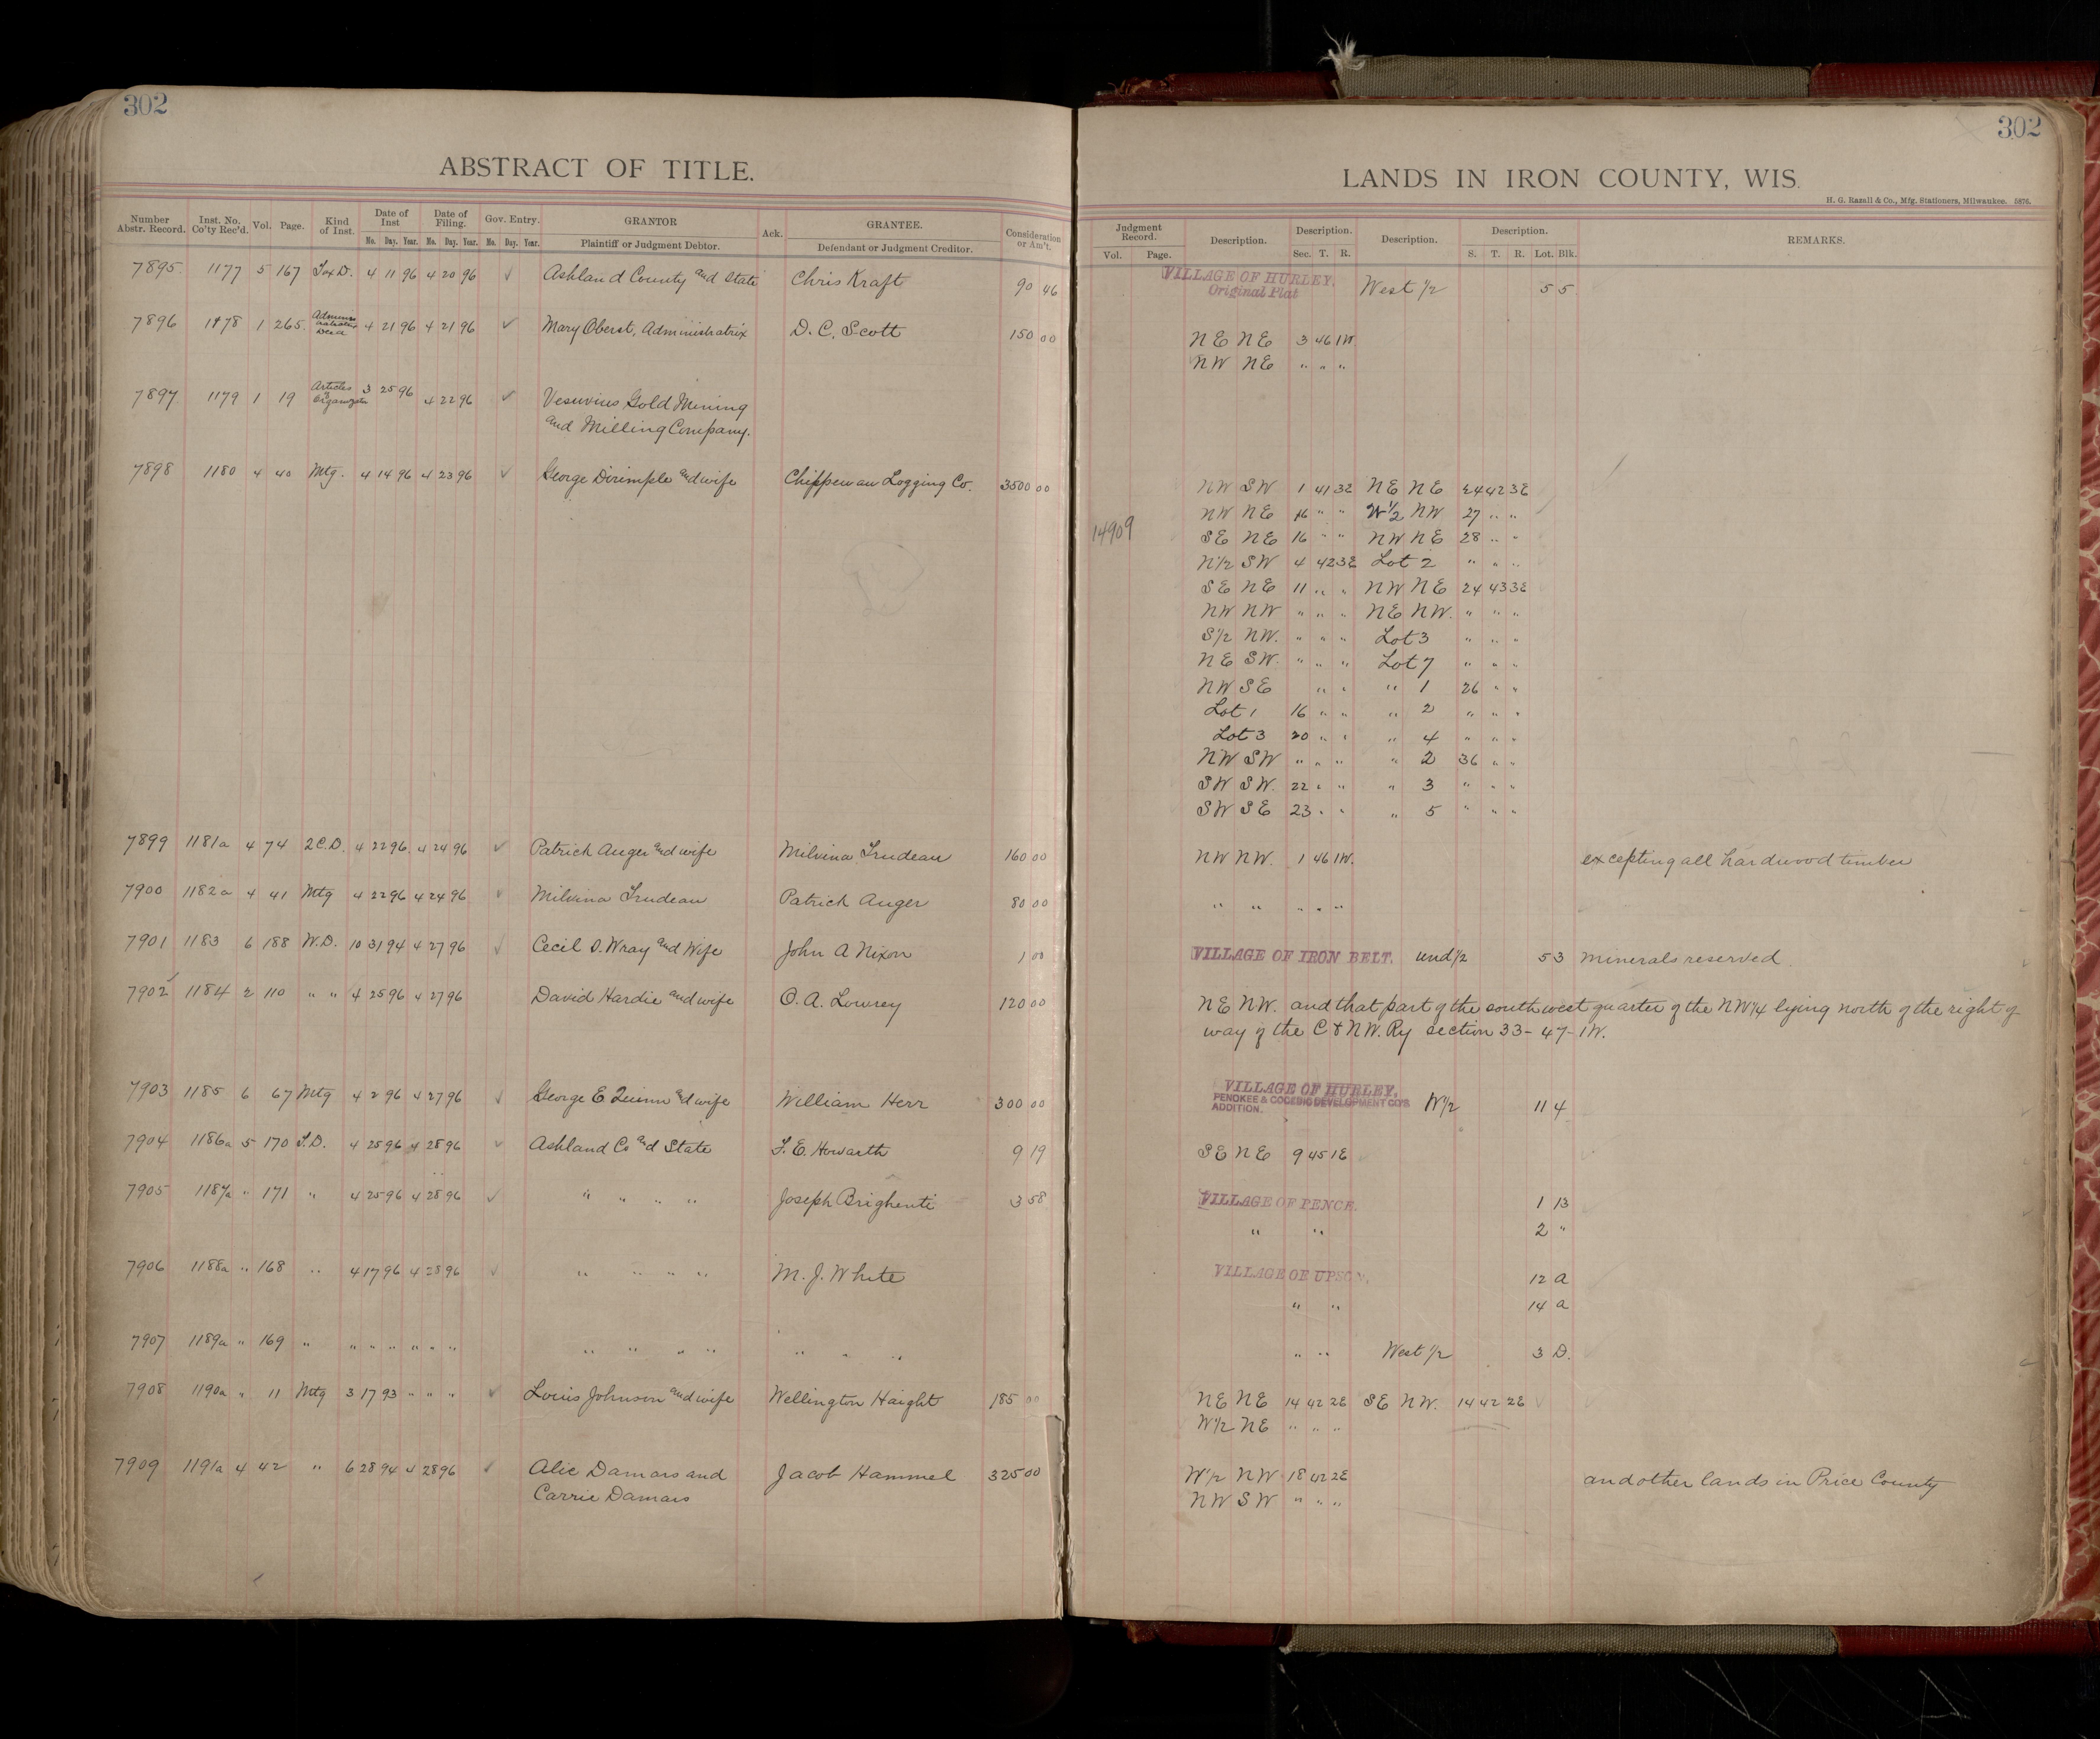 302
ABSTRACT OF TITLE.
Number Abstr. Record. Inst. No. Co'ty Rec'd. Vol. Page. Kind of Inst. Date of Inst Date of Filing. Gov. Entry. GRANTOR Ack. GRANTEE. Consideration or Am't.
No. Day. Year. No. Day. Year. No. Day. Year. Plaintiff or Judgment Debtor. Defendant or Judgment Creditor.
7895 1177 5 167 Tax D. 4 11 96 4 20 96 Ashland County and State Chris Kraft 90 46
7896 1178 1 265 4 21 96 4 21 96 Mary Oberst, Administratrix D. C. Scott 150 00
7897 1179 1 19 Articles 3 25 96 4 22 96 Vesuvius Gold Mining
and Milling Company.
7898 1180 4 40 Mtg. 4 14 96 4 23 96 George Dirimple and wife Chippewau Logging Co. 3500 00
7899 1181a 4 74 2 C.D. 4 22 96 4 24 96 Patrick Auger and wife Milvina Trudeau 160 00
7900 1182a 4 41 Mtg 4 22 96 4 24 96 Milvina Trudeau Patrick Auger 80 00
7901 1183 6 188 W.D. 10 31 94 4 27 96 Cecil D. Wray and Wife John A Nixon 1 00
7902 1184 2 110 " " 4 25 96 4 27 96 David Hardie and wife O. A. Lowrey 120 00
7903 1185 6 67 Mtg 4 2 96 4 27 96 George E Quinn and wife William Herr 300 00
7904 1186a 5 170 T.D. 4 25 96 4 28 96 Ashland Co and State F. E. Howarth 9 19
7905 1187a " 171 " 4 25 96 4 28 96 " " " " Joseph Brighenti 3 58
7906 1188a " 168 " 4 17 96 4 28 96 " " " " M. J. White
7907 1189a " 169 " " " " " " " " " " " " " "
7908 1190a " 11 Mtg 3 17 93 " " " Louis Johnson and wife Wellington Haight 185 00
7909 1191a 4 42 " 6 28 94 4 28 96 Alic Damars and Jacob Hammel 325 00
Carrie Damars
302
LANDS IN IRON COUNTY, WIS.
H. G. Razall & Co., Mfg. Stationers, Milwaukee. 5876.
Judgment Record. Description. Description. Description. Description. REMARKS.
Vol. Page. Sec. T. R. S. T. R. Lot. Blk.
VILLAGE OF HURLEY. West 1/2 5 5
Original Plat
NE NE 3 46 1W
NW NE " " "
NW SW 1 41 3E NE NE 24 42 3E
NW NE 16 " " W1/2 NW 27 " "
14909 SE NE 16 " " NW NE 28 " "
N1/2 SW 4 42 3E Lot 2 " " "
SE NE 11 " " NW NE 24 43 3E
NW NW " " " NE NW. " " "
S1/2 NW. " " " Lot 3 " " "
NE SW. " " " Lot 7 " " "
NW SE " " " 1 26 " "
Lot 1 16 " " " 2 " " "
Lot 3 20 " " " 4 " " "
NW SW " " " " 2 36 " "
SW SW. 22 " " " 3 " " "
SW SE 23 " " " 5 " " "
NW NW. 1 46 1W. excepting all hardwood timber
" " " " "
VILLAGE OF IRON BELT. und 1/2 5 3 minerals reserved
NE NW. and that part of the southwest quarter of the NW1/4 lying north of the right of
way of the C & N.W. Ry section 33-47-1W.
VILLAGE OF HURLEY,
PENOKEE & GOGEBIC DEVELOPMENT CO'S W1/2 11 4
ADDITION.
SE NE 9 45 1E
VILLAGE OF PENCE. 1 13
" " 2 "
VILLAGE OF UPSON, 12 a
" " 14 a
" " West 1/2 3 D.
NE NE 14 42 2E SE NW. 14 42 2E
W1/2 NE " " "
W1/2 NW 18 42 2E and other lands in Price County
NW SW " " "